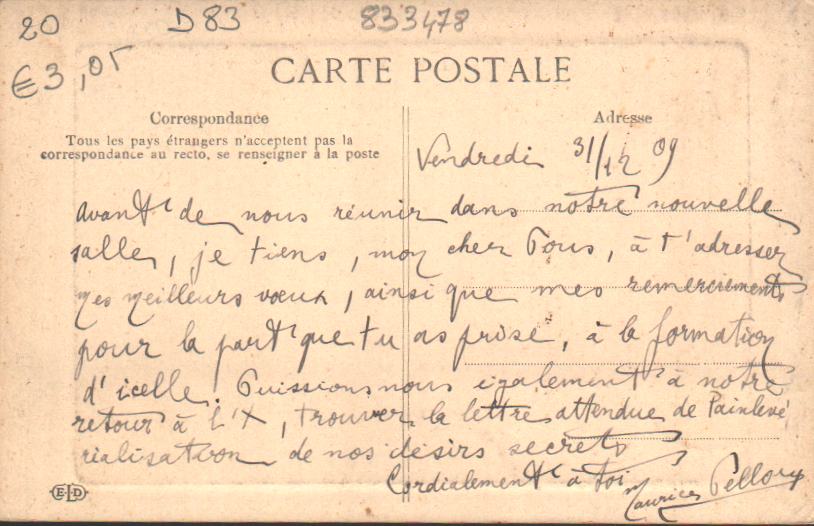 20 D 83 833478
€3,05
CARTE POSTALE
Correspondance
Adresse
Tous les pays étrangers n'acceptent pas la
correspondance au recto, se renseigner à la poste
Vendredi 31/12 09
avant de nous réunir dans notre nouvelle
salle, je tiens, mon cher Pous, à t'adresser
mes meilleurs vœux, ainsi que mes remerciements
pour la part que tu as prise, à la formation
d'icelle. Puissions nous également à notre
retour à l'X, trouver la lettre attendue de Painlevé
réalisation de nos désirs secrets
Cordialement à toi
Maurice
ELD